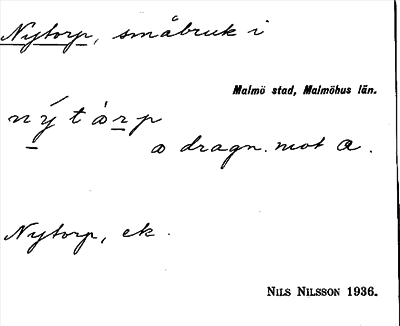 Nytorp, småbruk i
Malmö stad, Malmöhus län.
nýtàrp
a dragn. mot a.
Nytorp, ek.
NILS NILSSON 1936.